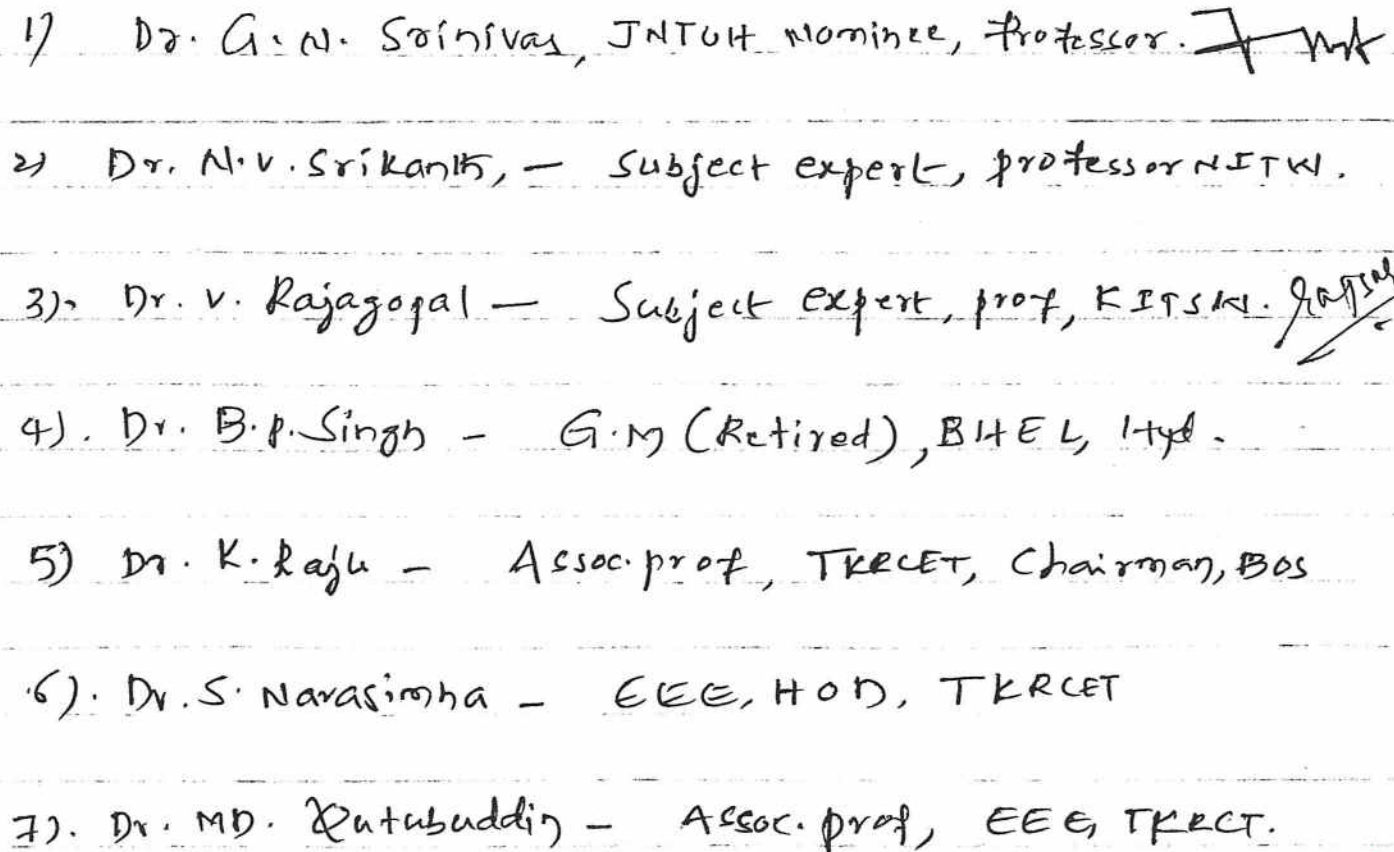 1) Dr. G.N. Srinivas, JNTUH Nominee, Professor.
2) Dr. N.V. Srikanth, – Subject expert, professor NITW.
3). Dr. V. Rajagopal – Subject expert, prof, KITSW.
4). Dr. B.P. Singh – G.M (Retired), BHEL, Hyd.
5) Dr. K. Raju – Assoc. prof, TKRCET, Chairman, BOS
6). Dr. S. Narasimha – EEE, HOD, TKRCET
7). Dr. MD. Qutubuddin – Assoc. prof, EEE, TKRCT.